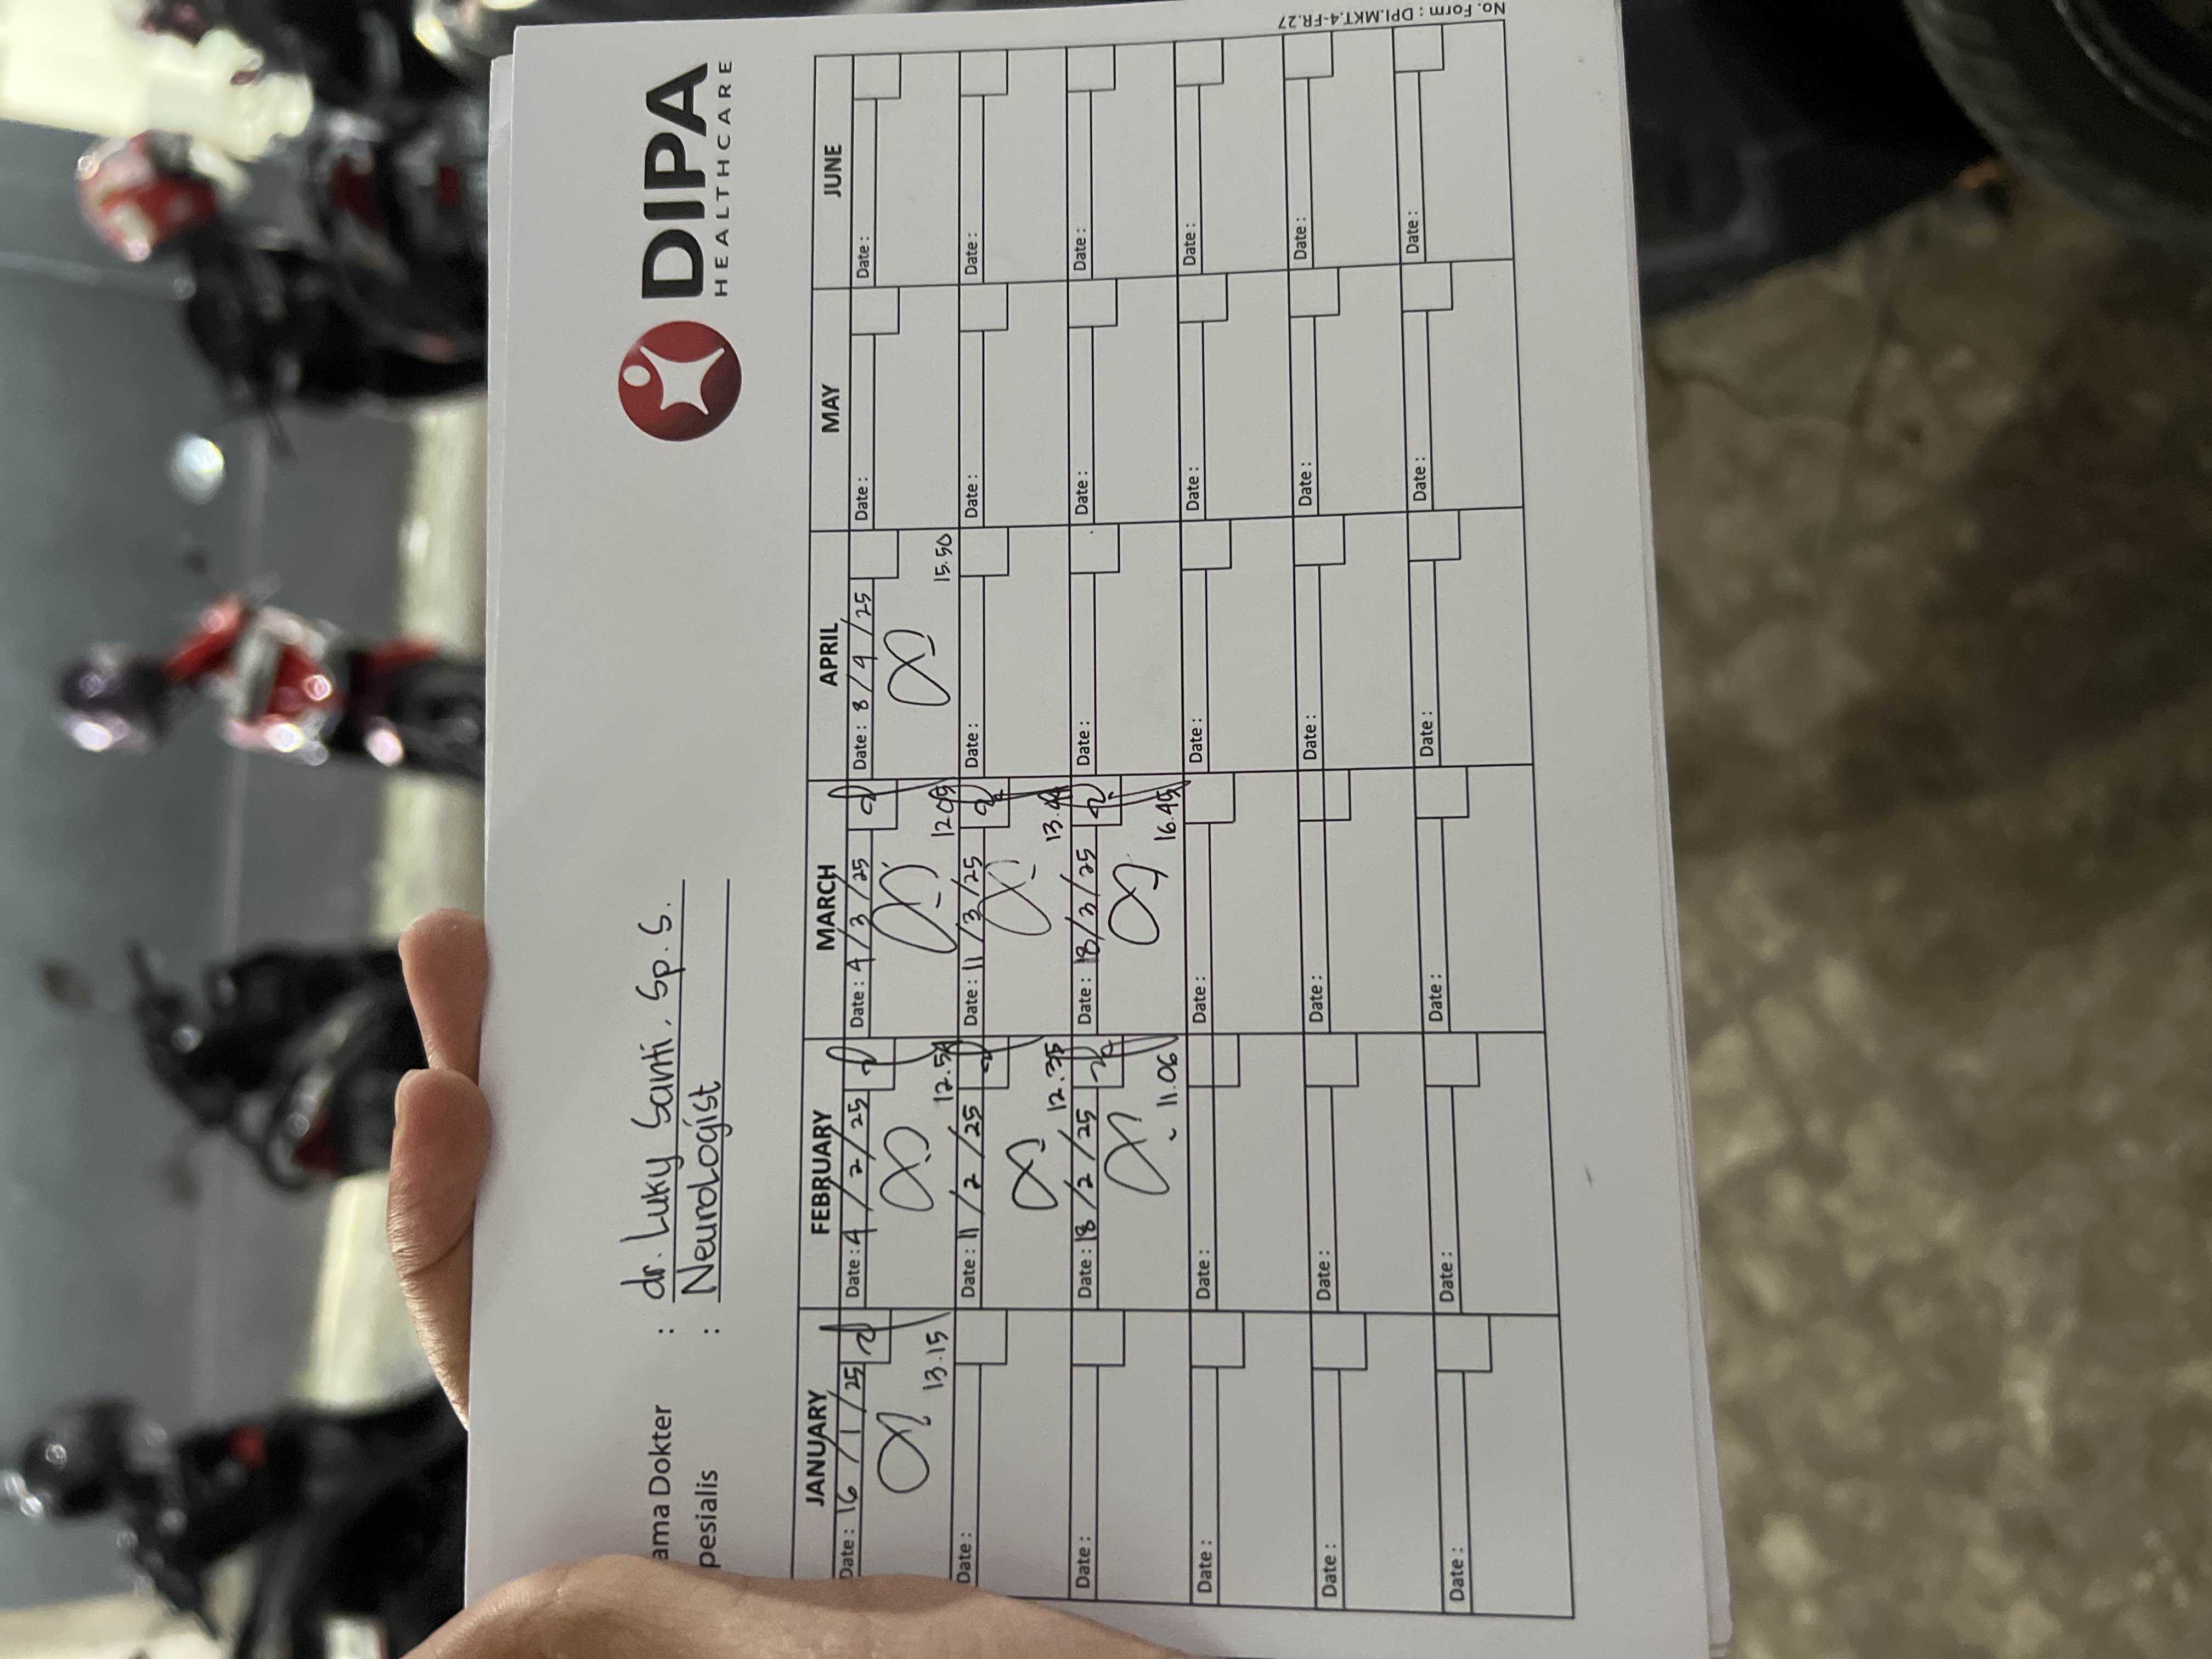 DIPA
HEALTHCARE
ama Dokter : dr. Luky Santi, Sp. S.
pesialis : Neurologist
JANUARY FEBRUARY MARCH APRIL MAY JUNE
Date : 16 / 1 / 25 Date : 4 / 2 / 25 Date : 4 / 3 / 25 Date : 8 / 4 / 25 Date : Date :
13.15 12.09 15.50
Date : Date : 11 / 2 / 25 Date : 11 / 3 / 25 Date : Date : Date :
12.35
Date : Date : 18 / 2 / 25 Date : 18 / 3 / 25 Date : Date : Date :
11.06 16.45
Date : Date : Date : Date : Date : Date :
Date : Date : Date : Date : Date : Date :
Date : Date : Date : Date : Date : Date :
No. Form : DPI.MKT.4-FR.27